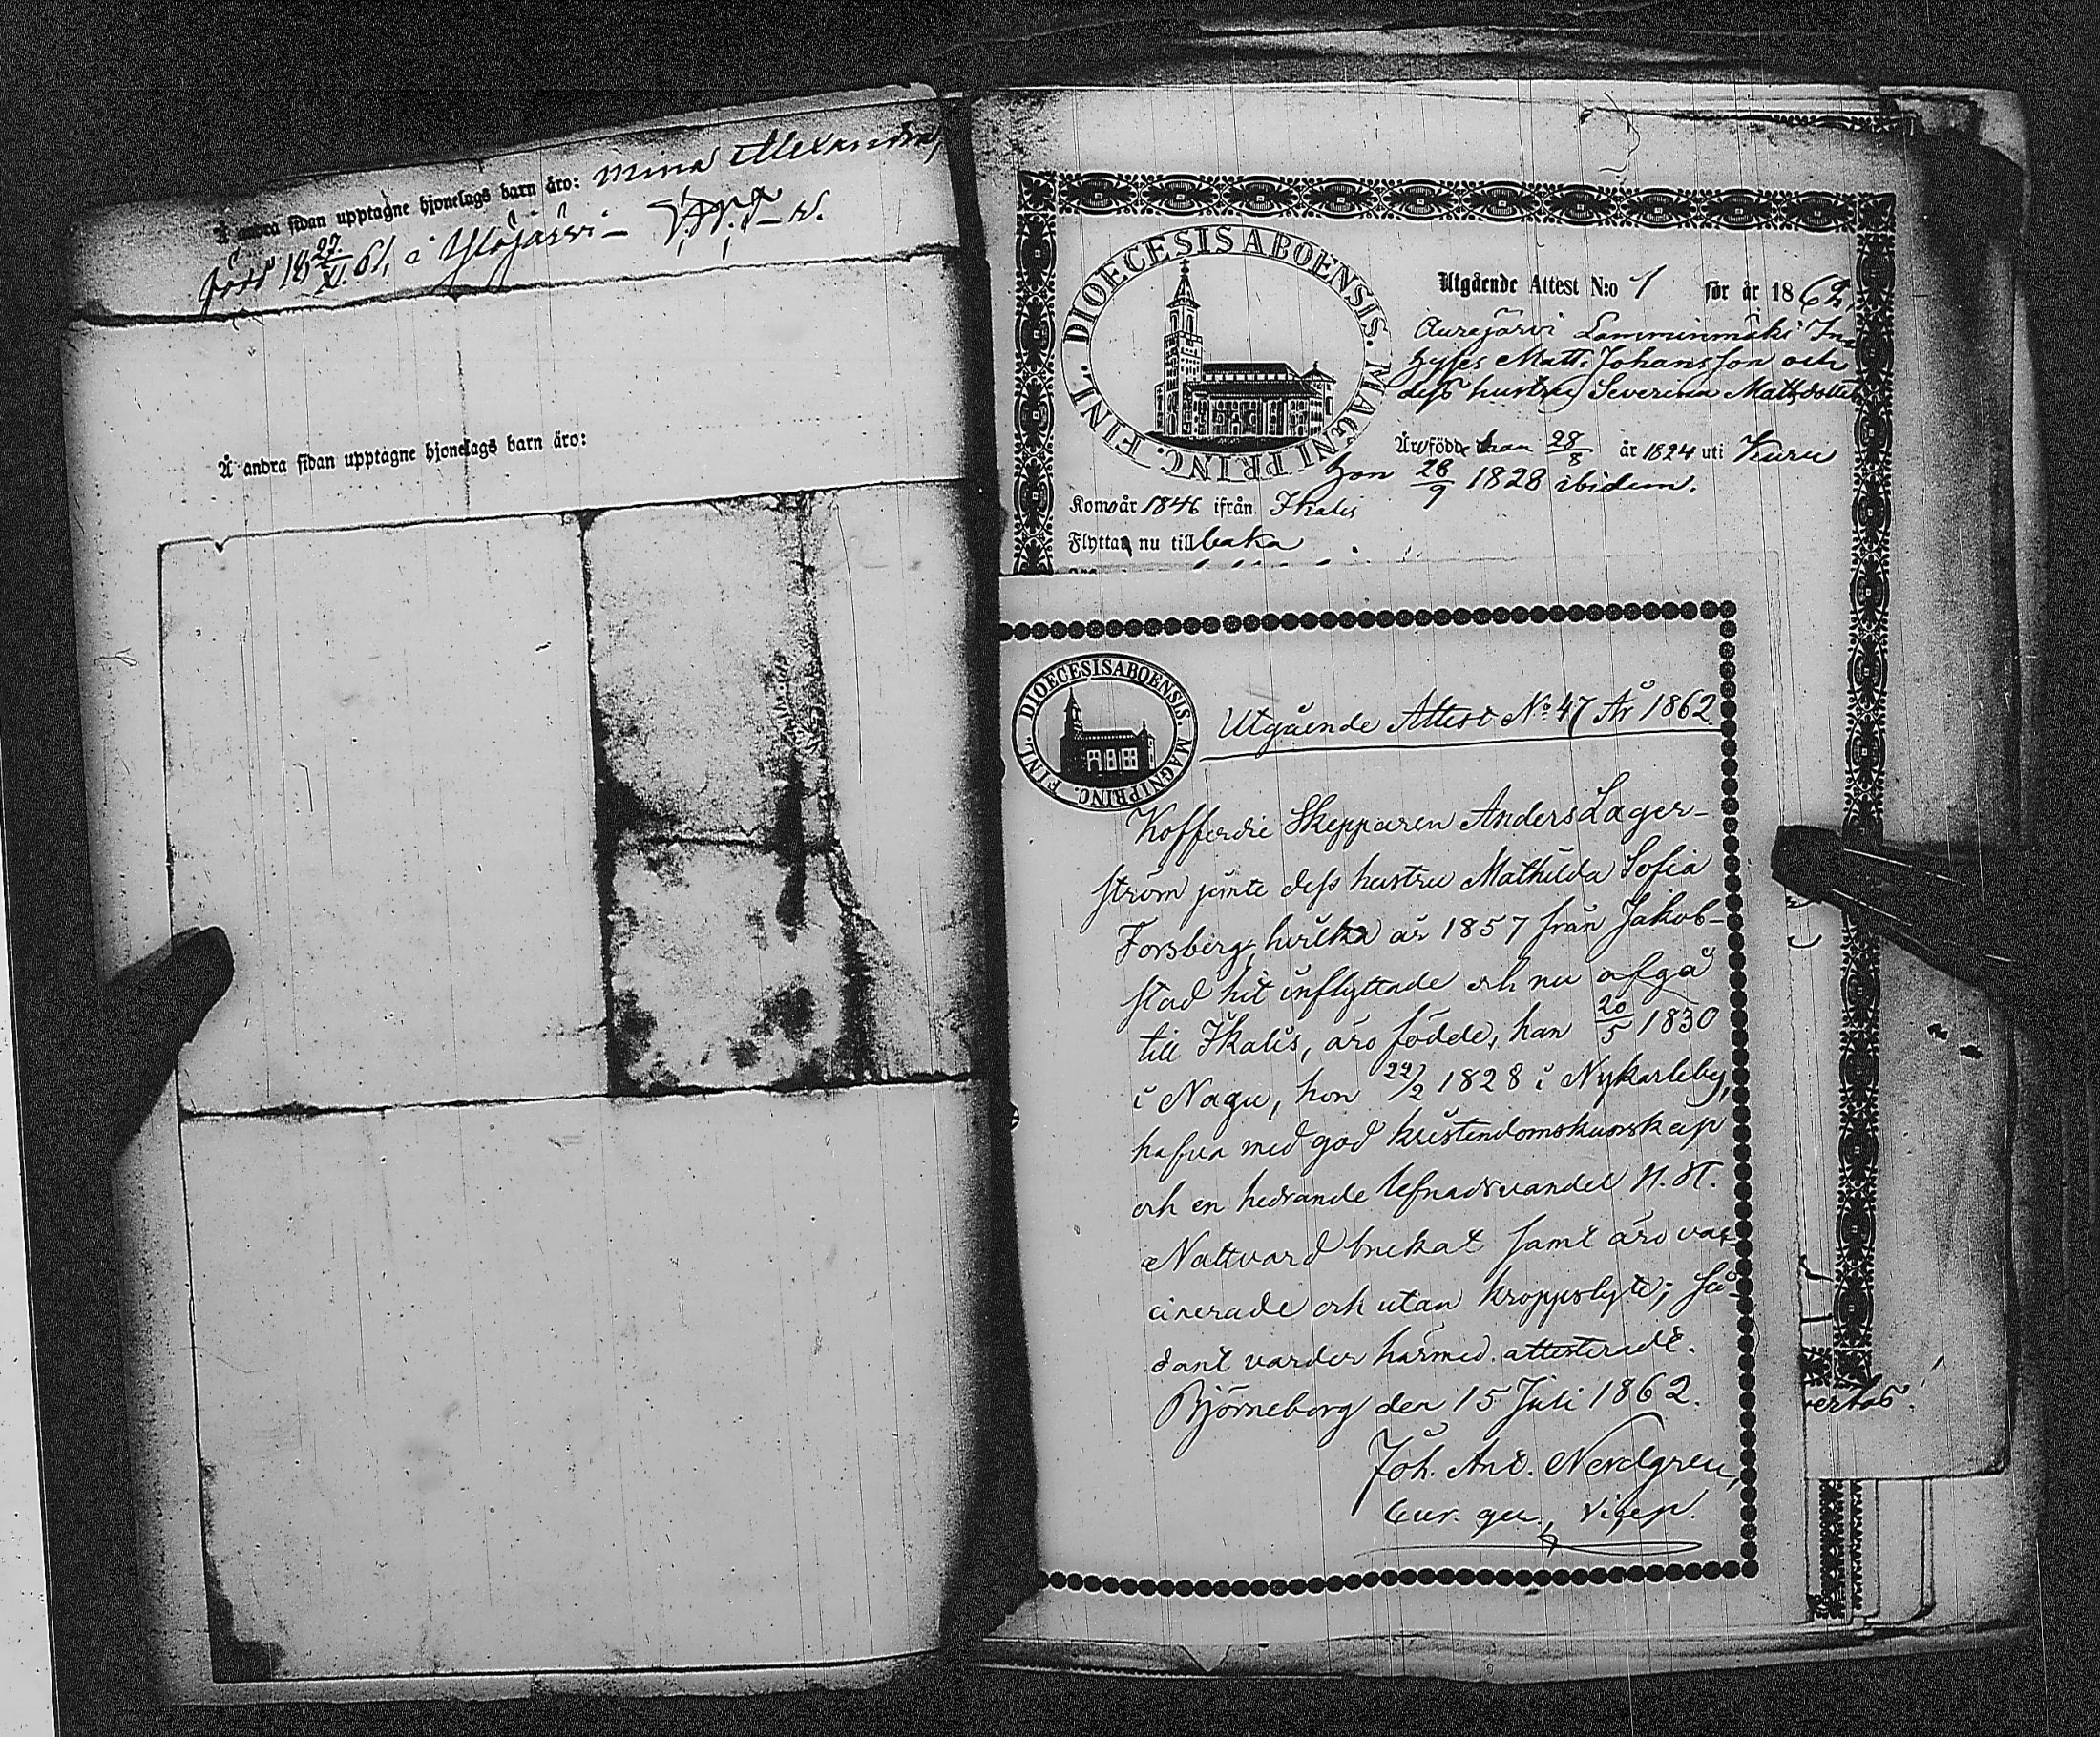 Å andra sidan upptagne hjonelags barn äro: Mina Alexandra,
född 18 27/XI. 61, i Ylöjärvi –
Å andra sidan upptagne hjonelags barn äro:
DIOECESIS ABOENSIS. MAGNI PRINC. FINL.
Utgående Attest N:o 1 för år 1862,
Aurejärvi Lamminmäki In-
hyses Matts Johansson och
dess hustru Severina Mattsdotter
Äro födde han 28/8 år 1824 uti Kuru
hon 28/9 1828 ibidem.
Kom år 1846 ifrån Ikalis
Flytta nu tillbaka
DIOECESIS ABOENSIS. MAGNI PRINC. FINL.
Utgående Attest No 47 År 1862
Kofferdie Skepparen Anders Lager-
ström jemte dess hustru Mathilda Sofia
Forsberg, hvilka år 1857 från Jakob-
stad hit inflyttade och nu afgå
till Ikalis, äro födde, han 20/5 1830
i Nagu, hon 22/2 1828 i Nykarleby,
hafva med god kristendomskunskap
och en hedrande lefnadsvandel H. H.
Nattvard brukat samt äro vac-
cinerade och utan kroppslyte; så-
dant varder härmed attesteradt.
Björneborg den 15 Juli 1862.
Joh. Ant. Nordgren,
Cur. gu., Vicep.
vertas!